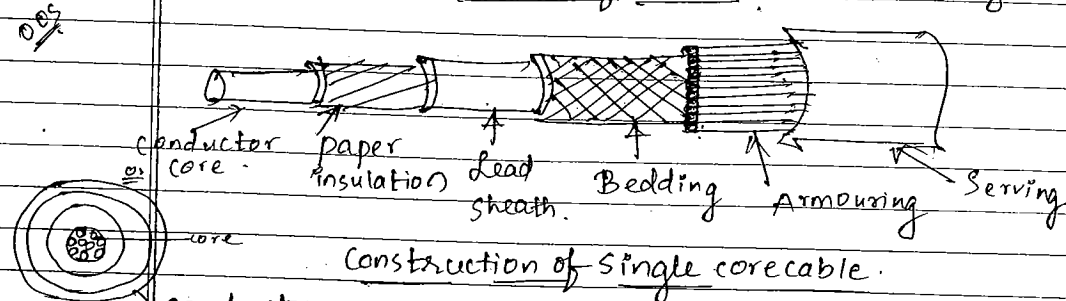 conductor or core.
paper insulation
Lead sheath.
Bedding
Armouring
Serving
core
Construction of single core cable.